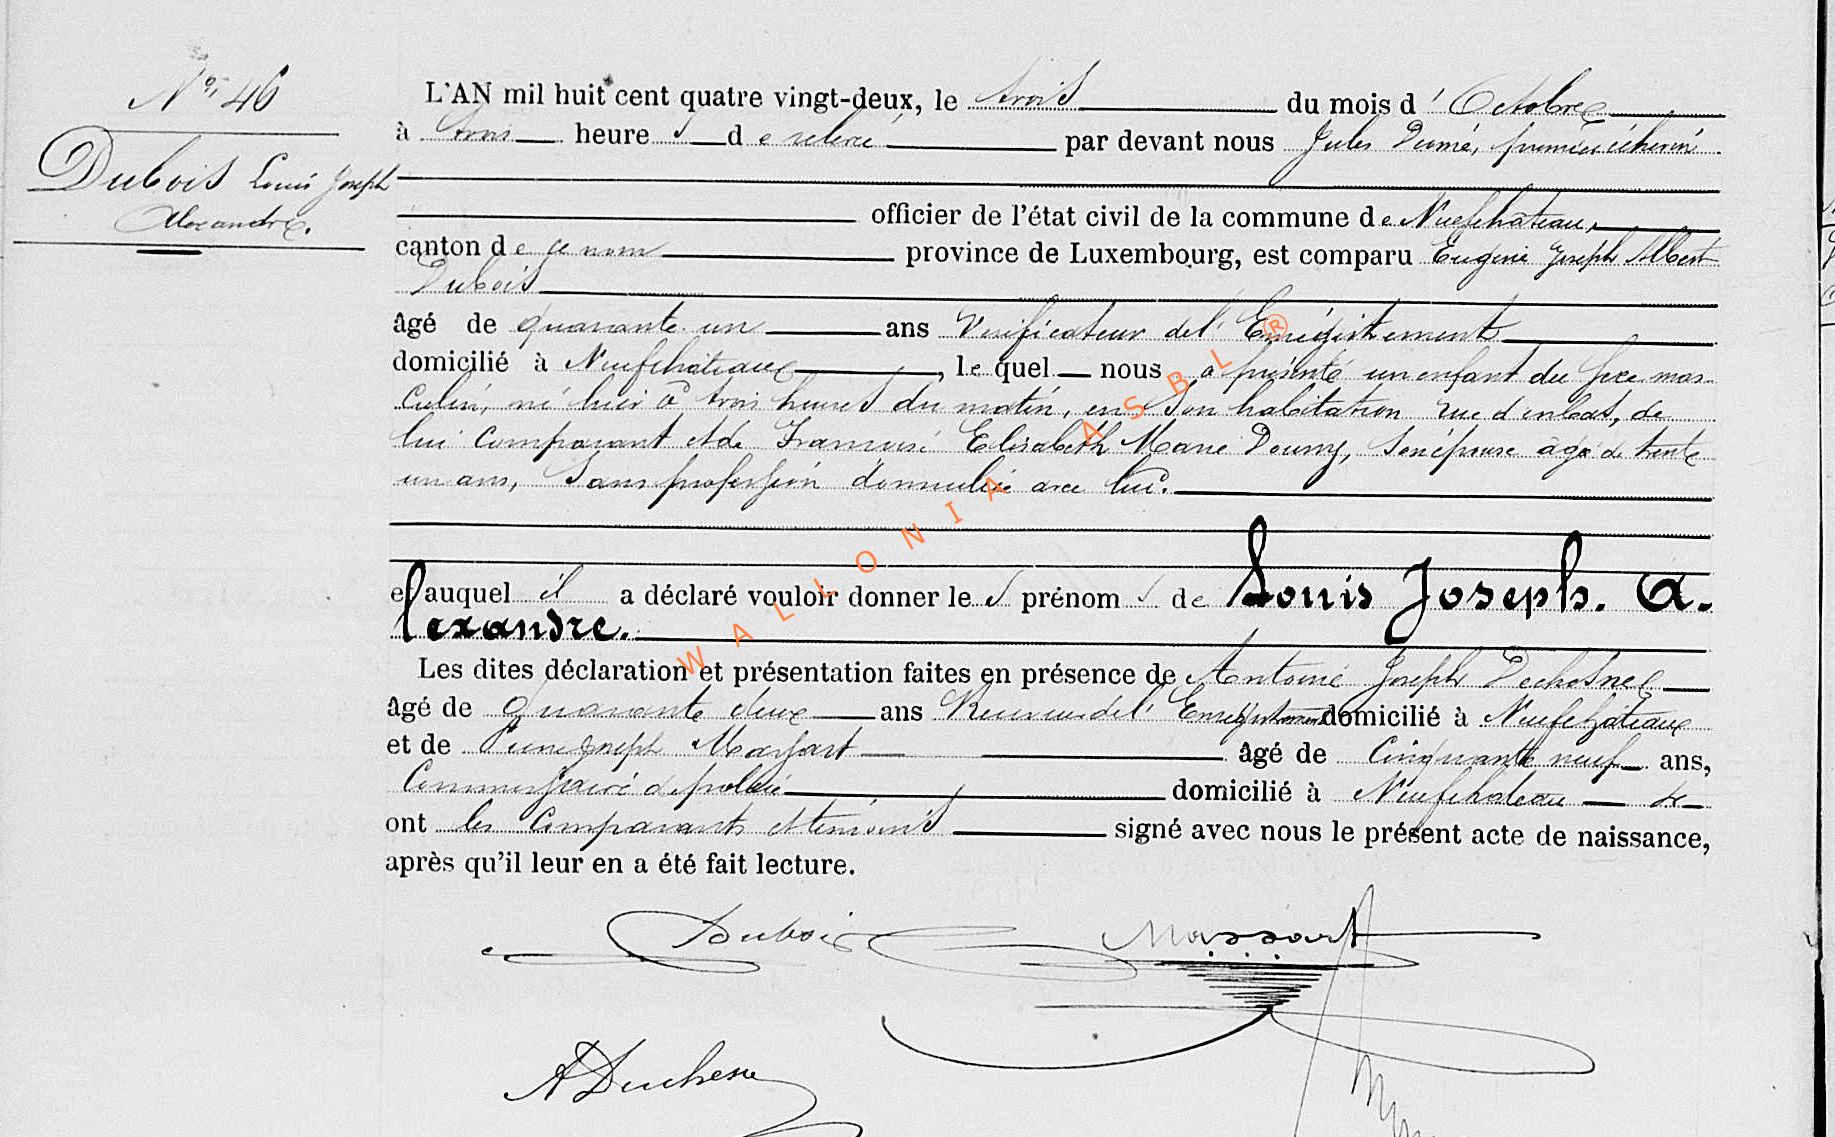 N° 46
Dubois Louis Joseph
Alexandre.
L'AN mil huit cent quatre vingt-deux, le trois du mois d'Octobre
à trois heures de relevé par devant nous Jules Dumé, premier échevin
officier de l'état civil de la commune de Neufchâteau,
canton de ce nom province de Luxembourg, est comparu Eugène Joseph Albert
Dubois
âgé de quarante un ans Vérificateur de l'Enrégistrement
domicilié à Neufchâteau, le quel nous a présenté un enfant du sexe mas-
culin, né hier à trois heures du matin, en son habitation rue d'enbas, de
lui comparant et de Françoise Elisabeth Marie Doumy, son épouse agée de trente
un ans, sans profession domiciliée avec lui.
et auquel il a déclaré vouloir donner les prénoms de Louis Joseph. A-
lexandre.
Les dites déclaration et présentation faites en présence de Antoine Joseph Dechesne
âgé de quarante deux ans Receveur de l'Enregistrement domicilié à Neufchâteau
et de Pierre Joseph Massart âgé de cinquante neuf ans,
Commissaire de police domicilié à Neufchâteau
ont les comparants et témoins signé avec nous le présent acte de naissance,
après qu'il leur en a été fait lecture.
Dubois Massart
A Duchesne
WALLONIA ASBL ®